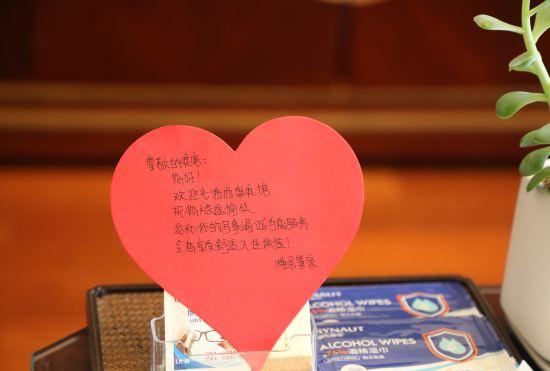 尊敬的宾客:
您好!
欢迎光临西苑宾馆
祝您旅途愉快
我和我的同事竭诚为您服务
令您享受舒适入住体验!
ALCOHOL WIPES
RYNAUT
ALCOHOL WIPES
75%酒精湿巾